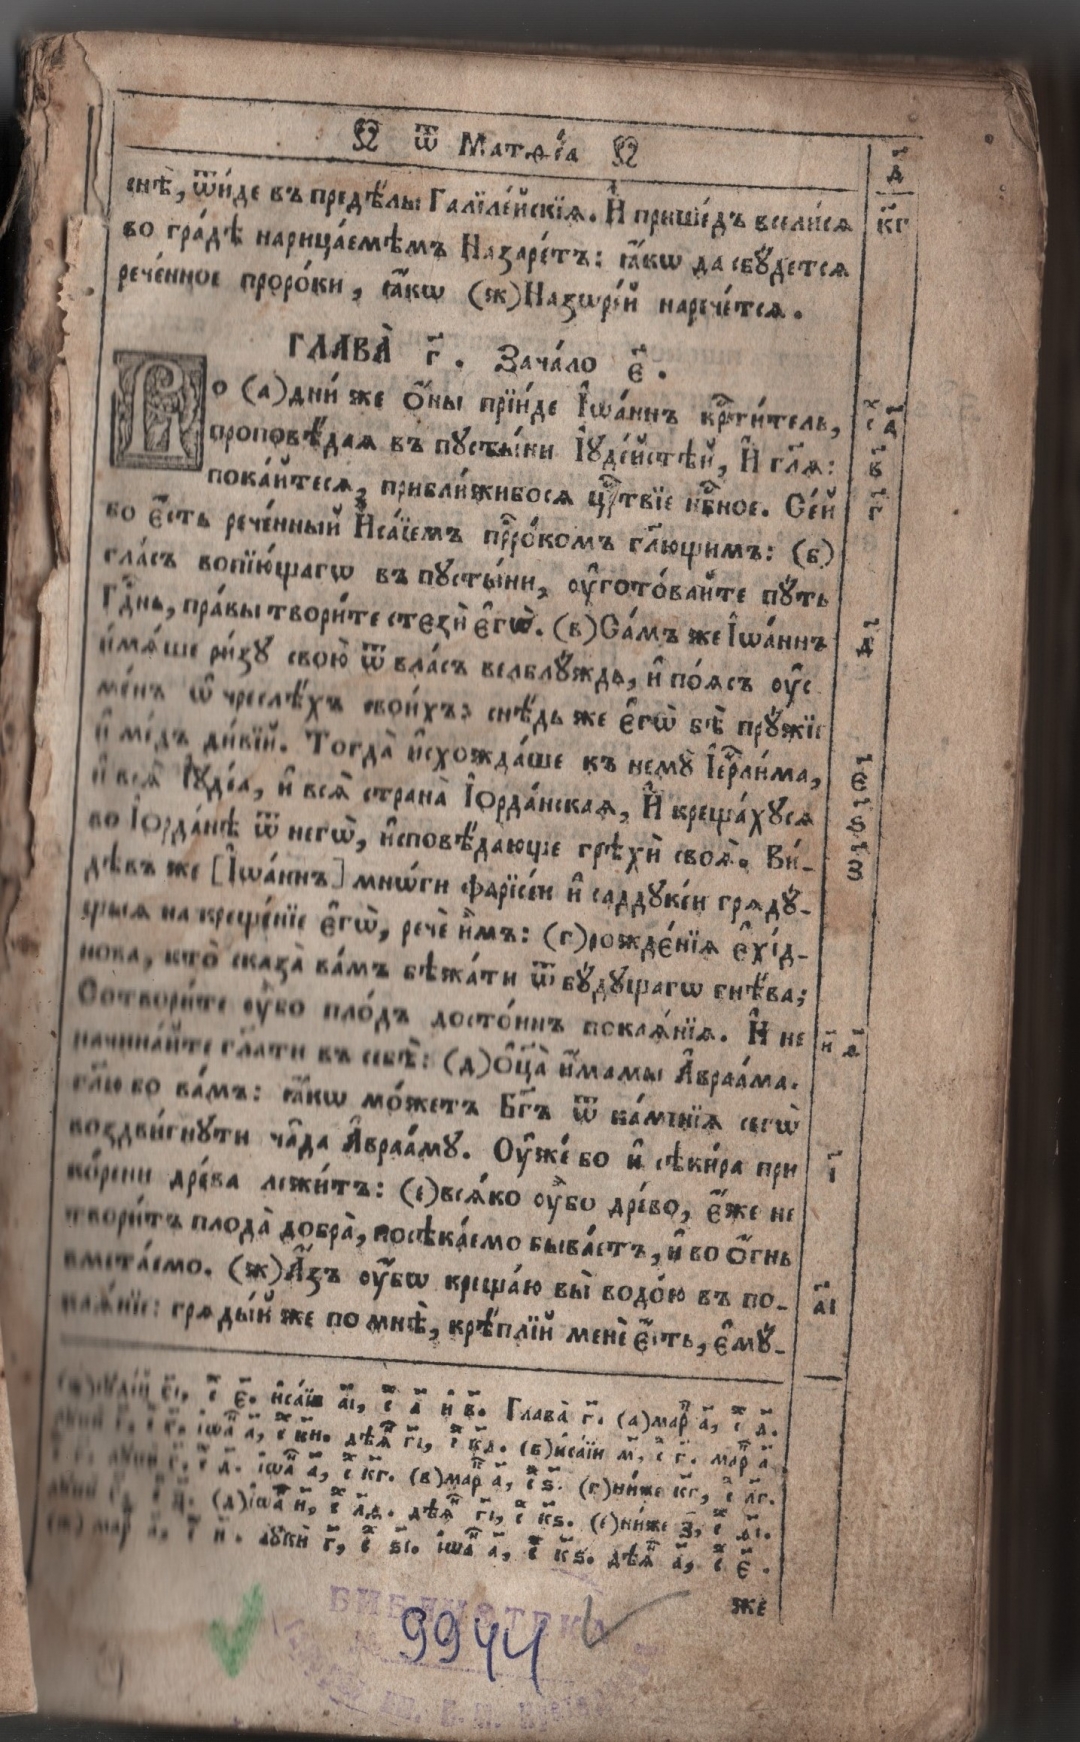 Ѿ Матѳе́а
д҃
снѣ̀, ѿи́де въ предѣ́лы Галїле́йскїѧ. И҆ прише́дъ всели́сѧ
к҃г
во гра́дѣ нарица́емѣмъ Назаре́тъ: ꙗ҆́кѡ да сбꙋ́детсѧ
рече́нное проро́ки, ꙗ҆́кѡ (ж)Назѡре́й нарече́тсѧ.
ГЛАВА̀ г҃. Зача́ло є҃.
Во (а)дни́ же ѻ҆́ны прїи́де І҆ѡа́ннъ крⷭ҇ти́тель,
проповѣ́даѧ въ пꙋсты́ни І҆ꙋде́йстѣй, И҆ гл҃ѧ:
в҃
пока́йтесѧ, прибли́жибосѧ црⷭ҇твїе нбⷭ҇ное. Се́й
г҃
бо є҆́сть рече́нный И҆са́їемъ прⷪ҇ро́комъ гл҃ющимъ: (б)
гла́съ вопїю́щагѡ въ пꙋсты́ни, ᲂу҆гото́вайте пꙋ́ть
Гдⷭ҇нь, пра́вы твори́те стєзѝ є҆гѡ̀. (в)Са́мъ же І҆ѡа́ннъ
д҃
и҆мѧ́ше ри́зꙋ свою̀ ѿ вла́съ велблꙋ́ждь, и҆ по́ѧсъ ᲂу҆с
ме́нъ ѡ҆ чреслѣ́хъ свои́хъ: снѣ́дь же є҆гѡ̀ бѣ̀ прꙋ́жїе
и҆ ме́дъ ди́вїй. Тогда̀ и҆схожда́ше къ немꙋ̀ І҆ерⷭ҇ли́ма,
є҃
и҆ всѧ̀ І҆ꙋде́а, и҆ всѧ̀ страна̀ І҆ѻрда́нскаѧ, И҆ креща́хꙋсѧ
ѕ҃
во І҆ѻрда́нѣ ѿ негѡ̀, и҆сповѣ́дающе грѣхѝ своѧ̀. Ви́-
з҃
дѣвъ же [І҆ѡа́ннъ] мнѡ́ги фарїсе́и и҆ саддꙋке́и грѧдꙋ́-
щыѧ на креще́нїе є҆гѡ̀, речѐ и҆̀мъ: (г)рожде́нїѧ є҆хі́д-
нова, кто̀ сказа̀ ва́мъ бѣжа́ти ѿ бꙋ́дꙋщагѡ гнѣ́ва;
Сотвори́те ᲂу҆̀бо пло́дъ досто́инъ покаѧ́нїѧ. И҆ не
и҃ ѳ҃
начина́йте гл҃ати въ себѣ̀: (д)Ѻ҆ц҃а̀ и҆́мамы А҆враа́ма.
гл҃ю бо ва́мъ: ꙗ҆́кѡ мо́жетъ Бг҃ъ ѿ ка́менїѧ сегѡ̀
воздви́гнꙋти ча̑да А҆враа́мꙋ. Оу҆же́ бо и҆ сѣки́ра при
і҃
ко́рени дре́ва лежи́тъ: (є)всѧ́ко ᲂу҆̀бо дре́во, є҆́же не
твори́тъ плода̀ добра̀, посѣка́емо быва́етъ, и҆ во ѻ҆́гнь
вмета́емо. (ж)А҆́зъ ᲂу҆́бѡ креща́ю вы̀ водо́ю въ по-
а҃і
каѧ́нїе: грѧды́й же по мнѣ̀, крѣ́плїй менѐ є҆́сть, є҆мꙋ́-
Глава̀ г҃. (а)мар а҃, д҃.
же
БИБЛИОТЕКА
9944